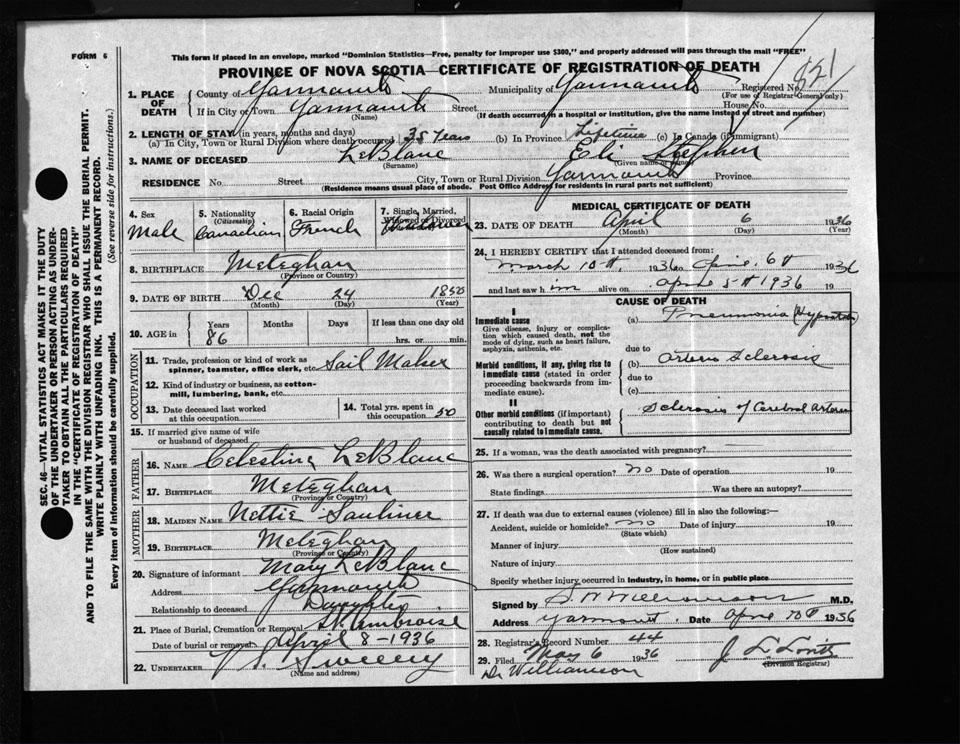 FORM 6
This form if placed in an envelope, marked "Dominion Statistics—Free, penalty for improper use $300," and properly addressed will pass through the mail "FREE"
PROVINCE OF NOVA SCOTIA—CERTIFICATE OF REGISTRATION OF DEATH
SEC. 46—VITAL STATISTICS ACT MAKES IT THE DUTY
OF THE UNDERTAKER OR PERSON ACTING AS UNDER-
TAKER TO OBTAIN ALL THE PARTICULARS REQUIRED
IN THE "CERTIFICATE OF REGISTRATION OF DEATH"
AND TO FILE THE SAME WITH THE DIVISION REGISTRAR WHO SHALL ISSUE THE BURIAL PERMIT.
WRITE PLAINLY WITH UNFADING INK. THIS IS A PERMANENT RECORD.
Every item of information should be carefully supplied. (See reverse side for instructions.)
1. PLACE OF DEATH County of Yarmouth Municipality of Yarmouth Registered No. 821
(For use of Registrar-General only)
If in City or Town Yarmouth Street House No.
(Name) (If death occurred in a hospital or institution, give the name instead of street and number)
2. LENGTH OF STAY (in years, months and days)
(a) In City, Town or Rural Division where death occurred 35 Years (b) In Province Lifetime (c) In Canada (if immigrant)
3. NAME OF DECEASED LeBlanc Eli Stephen
(Surname) (Given name or names)
RESIDENCE No. Street City, Town or Rural Division Yarmouth Province
(Residence means usual place of abode. Post Office Address for residents in rural parts not sufficient)
4. Sex Male
5. Nationality (Citizenship) Canadian
6. Racial Origin French
7. Single, Married, Widowed or Divorced Widower
8. BIRTHPLACE Meteghan
(Province or Country)
9. DATE OF BIRTH Dec 24 1850
(Month) (Day) (Year)
10. AGE in Years 86 Months Days If less than one day old hrs. or min.
OCCUPATION
11. Trade, profession or kind of work as spinner, teamster, office clerk, etc. Sail Maker
12. Kind of industry or business, as cotton-mill, lumbering, bank, etc.
13. Date deceased last worked at this occupation
14. Total yrs. spent in this occupation 50
15. If married give name of wife or husband of deceased
FATHER
16. NAME Celestine LeBlanc
17. BIRTHPLACE Meteghan
(Province or Country)
MOTHER
18. MAIDEN NAME Nettie Saulnier
19. BIRTHPLACE Meteghan
(Province or Country)
20. Signature of informant Mary LeBlanc
Address Yarmouth
Relationship to deceased Daughter
21. Place of Burial, Cremation or Removal St. Ambroise
Date of burial or removal April 8-1936
22. UNDERTAKER Sweeny
(Name and address)
MEDICAL CERTIFICATE OF DEATH
23. DATE OF DEATH April 6 1936
(Month) (Day) (Year)
24. I HEREBY CERTIFY that I attended deceased from:
March 10th, 1936 to April 6th 1936
and last saw him alive on April 5th 1936 19
CAUSE OF DEATH
I
Immediate cause
Give disease, injury or complication which caused death, not the mode of dying, such as heart failure, asphyxia, asthenia, etc.
(a) Pneumonia (Hypostatic)
due to
Morbid conditions, if any, giving rise to immediate cause (stated in order proceeding backwards from immediate cause).
(b) Arterio Sclerosis
due to
(c)
II
Other morbid conditions (if important) contributing to death but not causally related to immediate cause.
Sclerosis of Cerebral Arteries
25. If a woman, was the death associated with pregnancy?
26. Was there a surgical operation? no Date of operation 19
State findings Was there an autopsy?
27. If death was due to external causes (violence) fill in also the following:—
Accident, suicide or homicide? no Date of injury 19
(State which)
Manner of injury
(How sustained)
Nature of injury
Specify whether injury occurred in industry, in home, or in public place
Signed by S. W Williamson M.D.
Address Yarmouth. Date 1936
28. Registrar's Record Number 44
29. Filed May 6 1936
(Division Registrar)
Dr Williamson